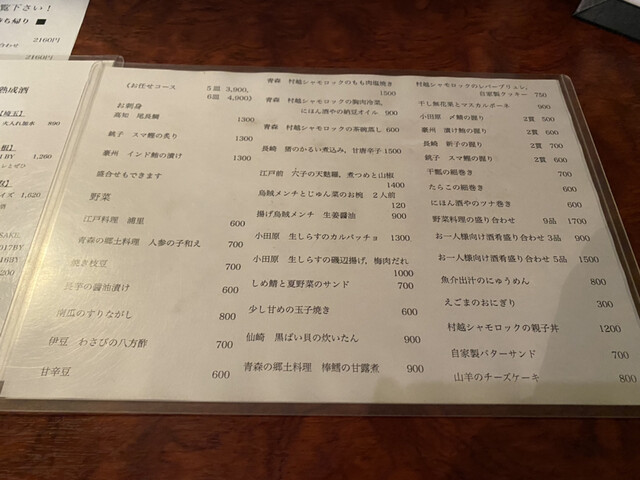 覧下さい！
ち帰り
わせ 2160円
2160円
熟成酒
890
BY 1,260
1,620
SAKE,
017BY
16BY
200
《お任せコース 5皿 3,900,
6皿 4,900》
お刺身
高知 尾長鯛 1300
銚子 スマ鰹の炙り 1300
豪州 インド鮪の漬け 1300
盛合せもできます
野菜
江戸料理 浦里 600
青森の郷土料理 人参の子和え 700
焼き枝豆 700
長芋の醤油漬け 600
南瓜のすりながし 800
伊豆 わさびの八方酢 700
甘辛豆 600
青森 村越シャモロックのもも肉塩焼き
1500
青森 村越シャモロックの胸肉冷菜,
にほん酒やの納豆オイル 900
青森 村越シャモロックの茶碗蒸し 600
長崎 猪のかるい煮込み, 甘唐辛子 1500
江戸前 穴子の天麩羅, 煮つめと山椒
1400
烏賊メンチとじゅん菜のお椀 2人前
120
揚げ烏賊メンチ 生姜醤油 900
小田原 生しらすのカルパッチョ 1300
小田原 生しらすの磯辺揚げ, 梅肉だれ
1000
しめ鯖と夏野菜のサンド 700
少し甘めの玉子焼き 600
仙崎 黒ばい貝の炊いたん 900
青森の郷土料理 棒鱈の甘露煮 900
村越シャモロックのレバーブリュレ,
自家製クッキー 750
干し無花果とマスカルポーネ 900
小田原 〆鯵の握り 2貫 500
豪州 漬け鮪の握り 2貫 600
長崎 新子の握り 2貫 700
銚子 スマ鰹の握り 2貫 600
干瓢の細巻き 700
たらこの細巻き 600
にほん酒やのツナ巻き 600
野菜料理の盛り合わせ 9品 1700
お一人様向け酒肴盛り合わせ 3品 900
お一人様向け酒肴盛り合わせ 5品 1500
魚介出汁のにゅうめん 800
えごまのおにぎり 300
村越シャモロックの親子丼 1200
自家製バターサンド 700
山羊のチーズケーキ 800